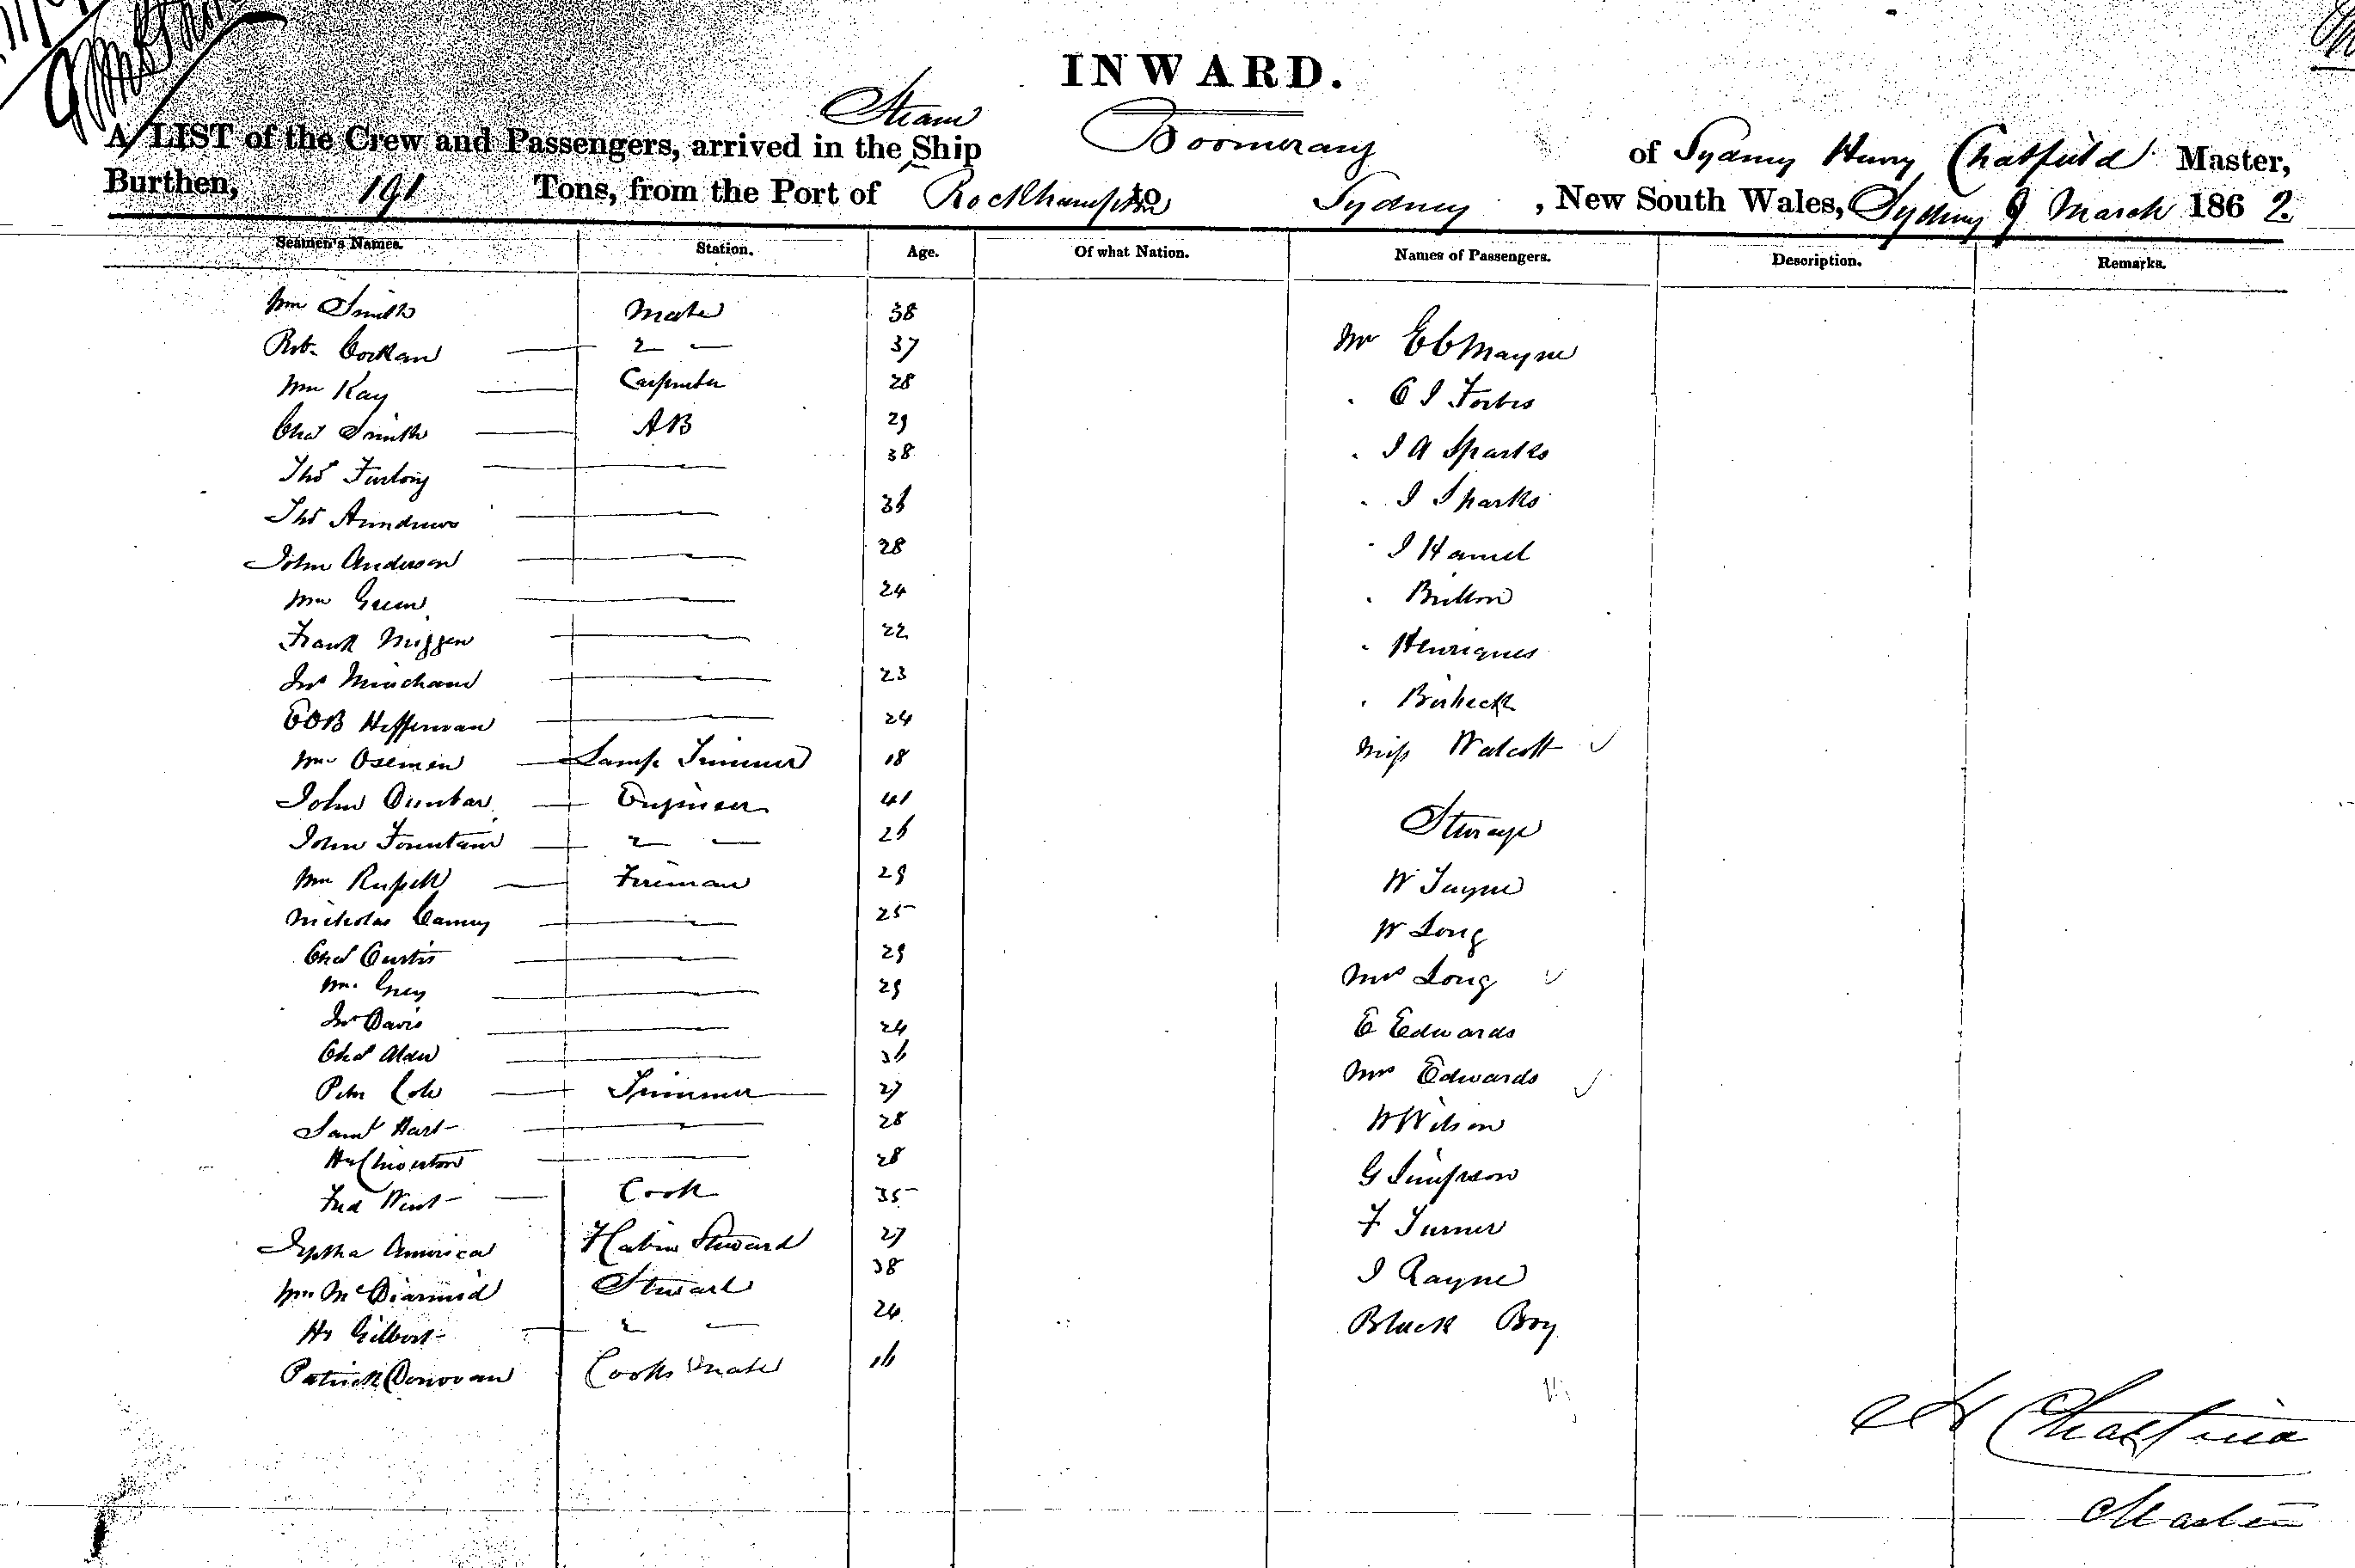 INWARD.
A LIST of the Crew and Passengers, arrived in the Steam Ship Boomerang of Sydney Henry Chatfield Master,
Burthen, 191 Tons, from the Port of Rockhampton to Sydney, New South Wales, Sydney 9 March 1862
Seamen's Names. Station. Age. Of what Nation. Names of Passengers. Description. Remarks.
Wm Smith Mate 38
Rob. Corkan — 2 — 37 Mr E C Mayne
Wm Kay — Carpenter 28 . C J Forbes
Chas Smith — AB 29 . J A Sparks
Thos Furlong — 38 . J Sparks
Thos Anndrews — 36 . J Hamel
John Anderson — 28 . Britton
Wm Green — 24 . Henriques
Frank Miggen — 22 . Birbeck
Jno Minchand — 23 Miss Walcott
E O B Heffernan — 24
Wm Osemen — Lamp Trimmer 18
John Dunbar — Engineer 41 Steerage
John Fountain — 2 — 26
Wm Russell — Fireman 29 W Tuyne
Nicholas Carney — 25 W Long
Chas Curtis — 29 Mrs Long
Wm. Grey — 29 E Edwards
Jno Davis — 24 Mrs Edwards
Chas Alder — 36 W Wilson
Peter Cole — Trimmer — 27 G Simpson
Saml Hart — 28 F Turner
Hy Chiverton — 28 J Rayne
Fred West — Cook 35 Black Boy
Jeptha America Steward 27
Wm McDiarmid Steward 38
Hy Gilbert — 2 — 24
Patrick Donovan Cooks Mate 16
H Chatfield
Master